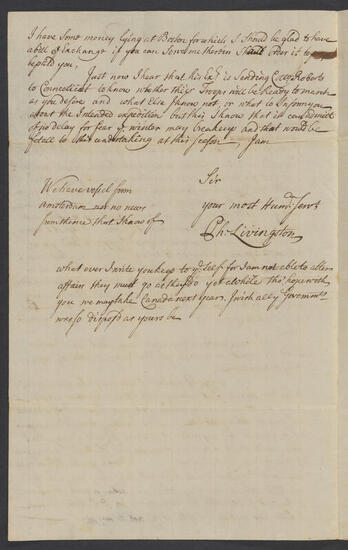 I have Some money lying at Boston for which I Should be glad to have
a bill of Exchange if you can Serve me therein Shall
you.
Just now I hear that his Exy is Sending Coll Roberts
to Connecticut to know whether their Troops will be Ready to march
as you desire and what Else I know not, or what to Inform you
about the Intended expedition but this I know that it can admit
of no delay for fear of winter may breakup and that would be
fatall to this undertaking at this Season. I am
Sir
We have no vessel from
Amsterdam nor no news
from thence that I know of
your most Humle Servt
Ph: Livingston
what ever I write you keep to yr Self for I am not able to alter
affairs they must go as they do yet awhile tho' hope with
you we may take Canada next year. I wish all ye Governmts
were so disposed as yours be